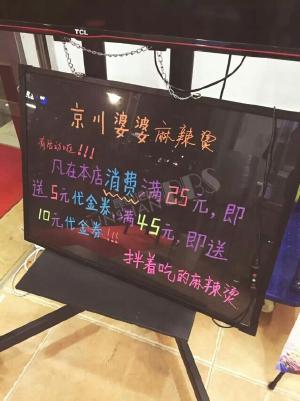 TCL
京川婆婆麻辣烫
有活动啦!!!
凡在本店消费满25元,即
送5元代金券,满45元,即送
10元代金券!!!
拌着吃的麻辣烫